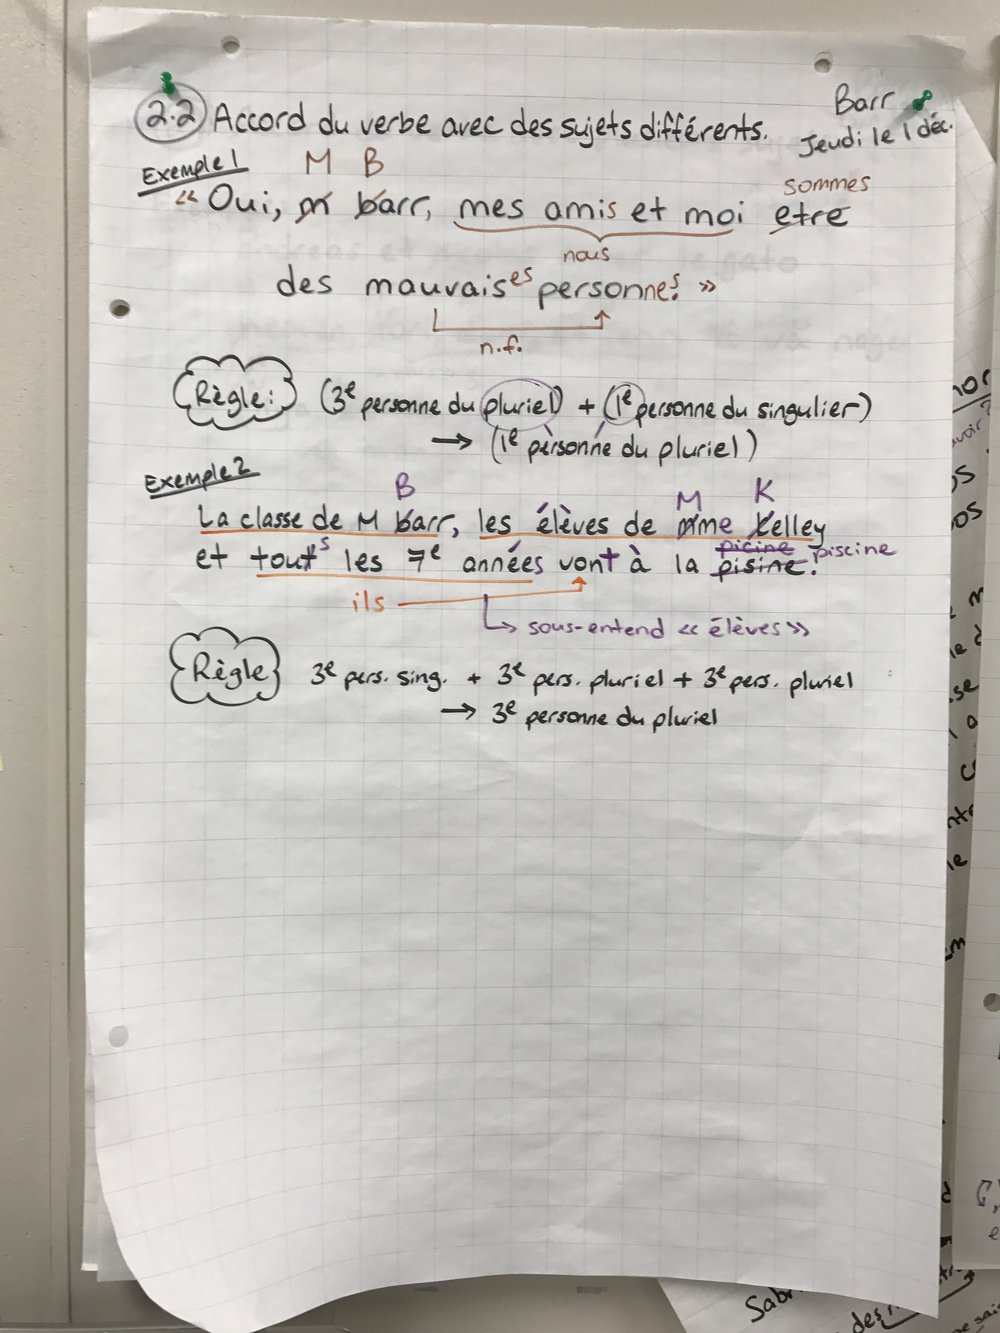 Barr
2.2 Accord du verbe avec des sujets différents.
Jeudi le 1 déc.
Exemple 1
M B
sommes
« Oui, m barr, mes amis et moi etre
nous
des mauvaises personnes. »
n.f.
Règle: (3e personne du pluriel) + (1e personne du singulier)
→ (1e personne du pluriel)
Exemple 2
B M K
La classe de M barr, les élèves de mme kelley
picine piscine
et touts les 7e années vont à la pisine.
ils
sous-entend « élèves »
Règle 3e pers. sing. + 3e pers. pluriel + 3e pers. pluriel
→ 3e personne du pluriel